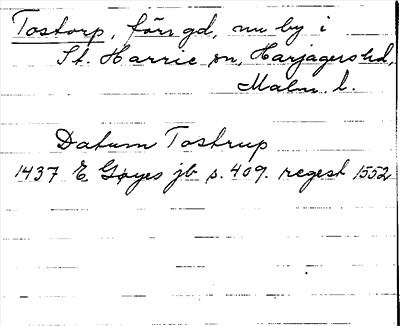 Tostorp, förr gd, nu by i
St. Harrie sn, Harjagers hd,
Malm. l.
Datum Tostrup
1437 E Gøyes jb s. 409. regest 1552